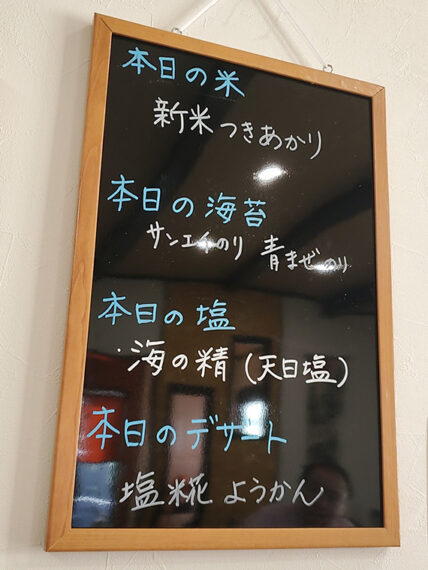 本日の米
新米つきあかり
本日の海苔
サンエイのり 青まぜのり
本日の塩
・海の精(天日塩)
本日のデザート
塩糀ようかん